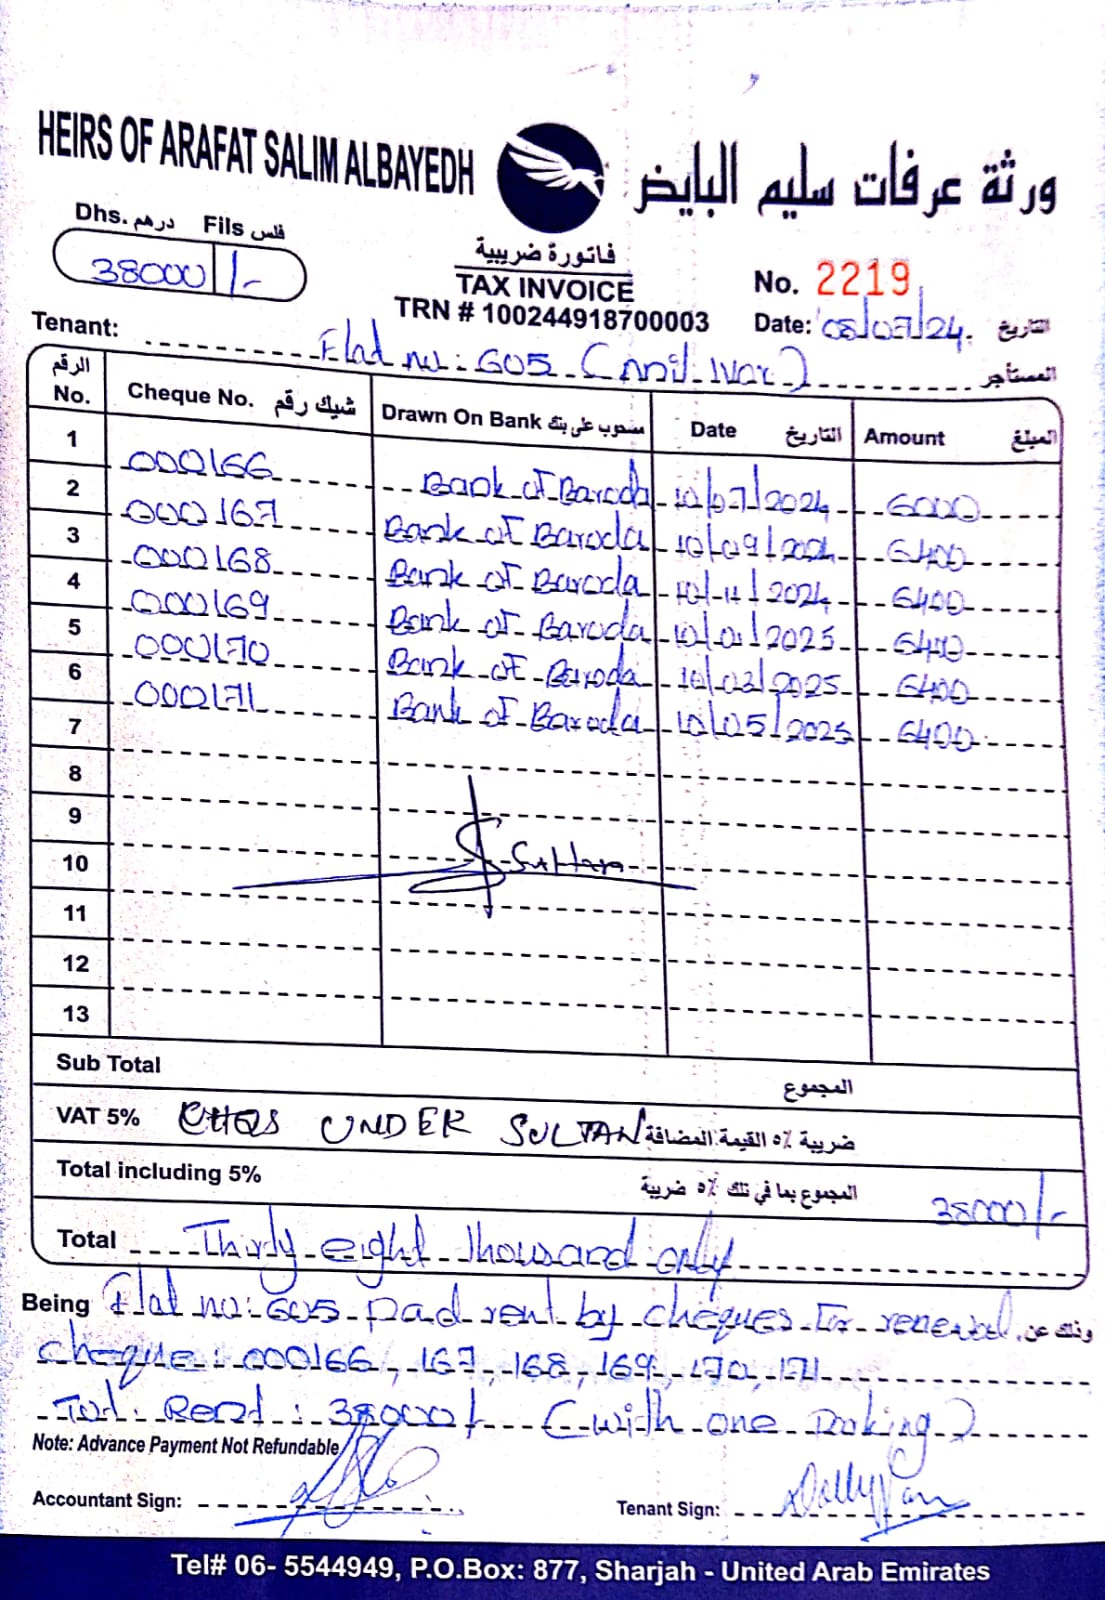 HEIRS OF ARAFAT SALIM ALBAYEDH
ورثة عرفات سليم البايض
Dhs. درهم Fils فلس
38000/-
فاتورة ضريبية
TAX INVOICE
TRN # 100244918700003
No. 2219
Date: 08/07/24. التاريخ
Tenant: Flat no: 605 المستأجر
الرقم No. Cheque No. شيك رقم Drawn On Bank مسحوب على بنك Date التاريخ Amount المبلغ
1 000166 Bank of Baroda 10/07/2024 6000
2 000167 Bank of Baroda 10/09/2024 6400
3 000168 Bank of Baroda 10/11/2024 6400
4 000169 Bank of Baroda 10/01/2025 6400
5 000170 Bank of Baroda 10/03/2025 6400
6 000171 Bank of Baroda 10/05/2025 6400
7
8
9
10 Sultan
11
12
13
Sub Total المجموع
VAT 5% CHQS UNDER SULTAN ضريبة ٥٪ القيمة المضافة
Total including 5% المجموع بما في تلك ٥٪ ضريبة 38000/-
Total Thirty eight thousand only
Being Flat no: 605 paid rent by cheques for renewal وذلك عن
cheque: 000166, 167, 168, 169, 170, 171
Tot. Rent: 38000/- (with one Parking)
Note: Advance Payment Not Refundable
Accountant Sign:
Tenant Sign:
Tel# 06- 5544949, P.O.Box: 877, Sharjah - United Arab Emirates